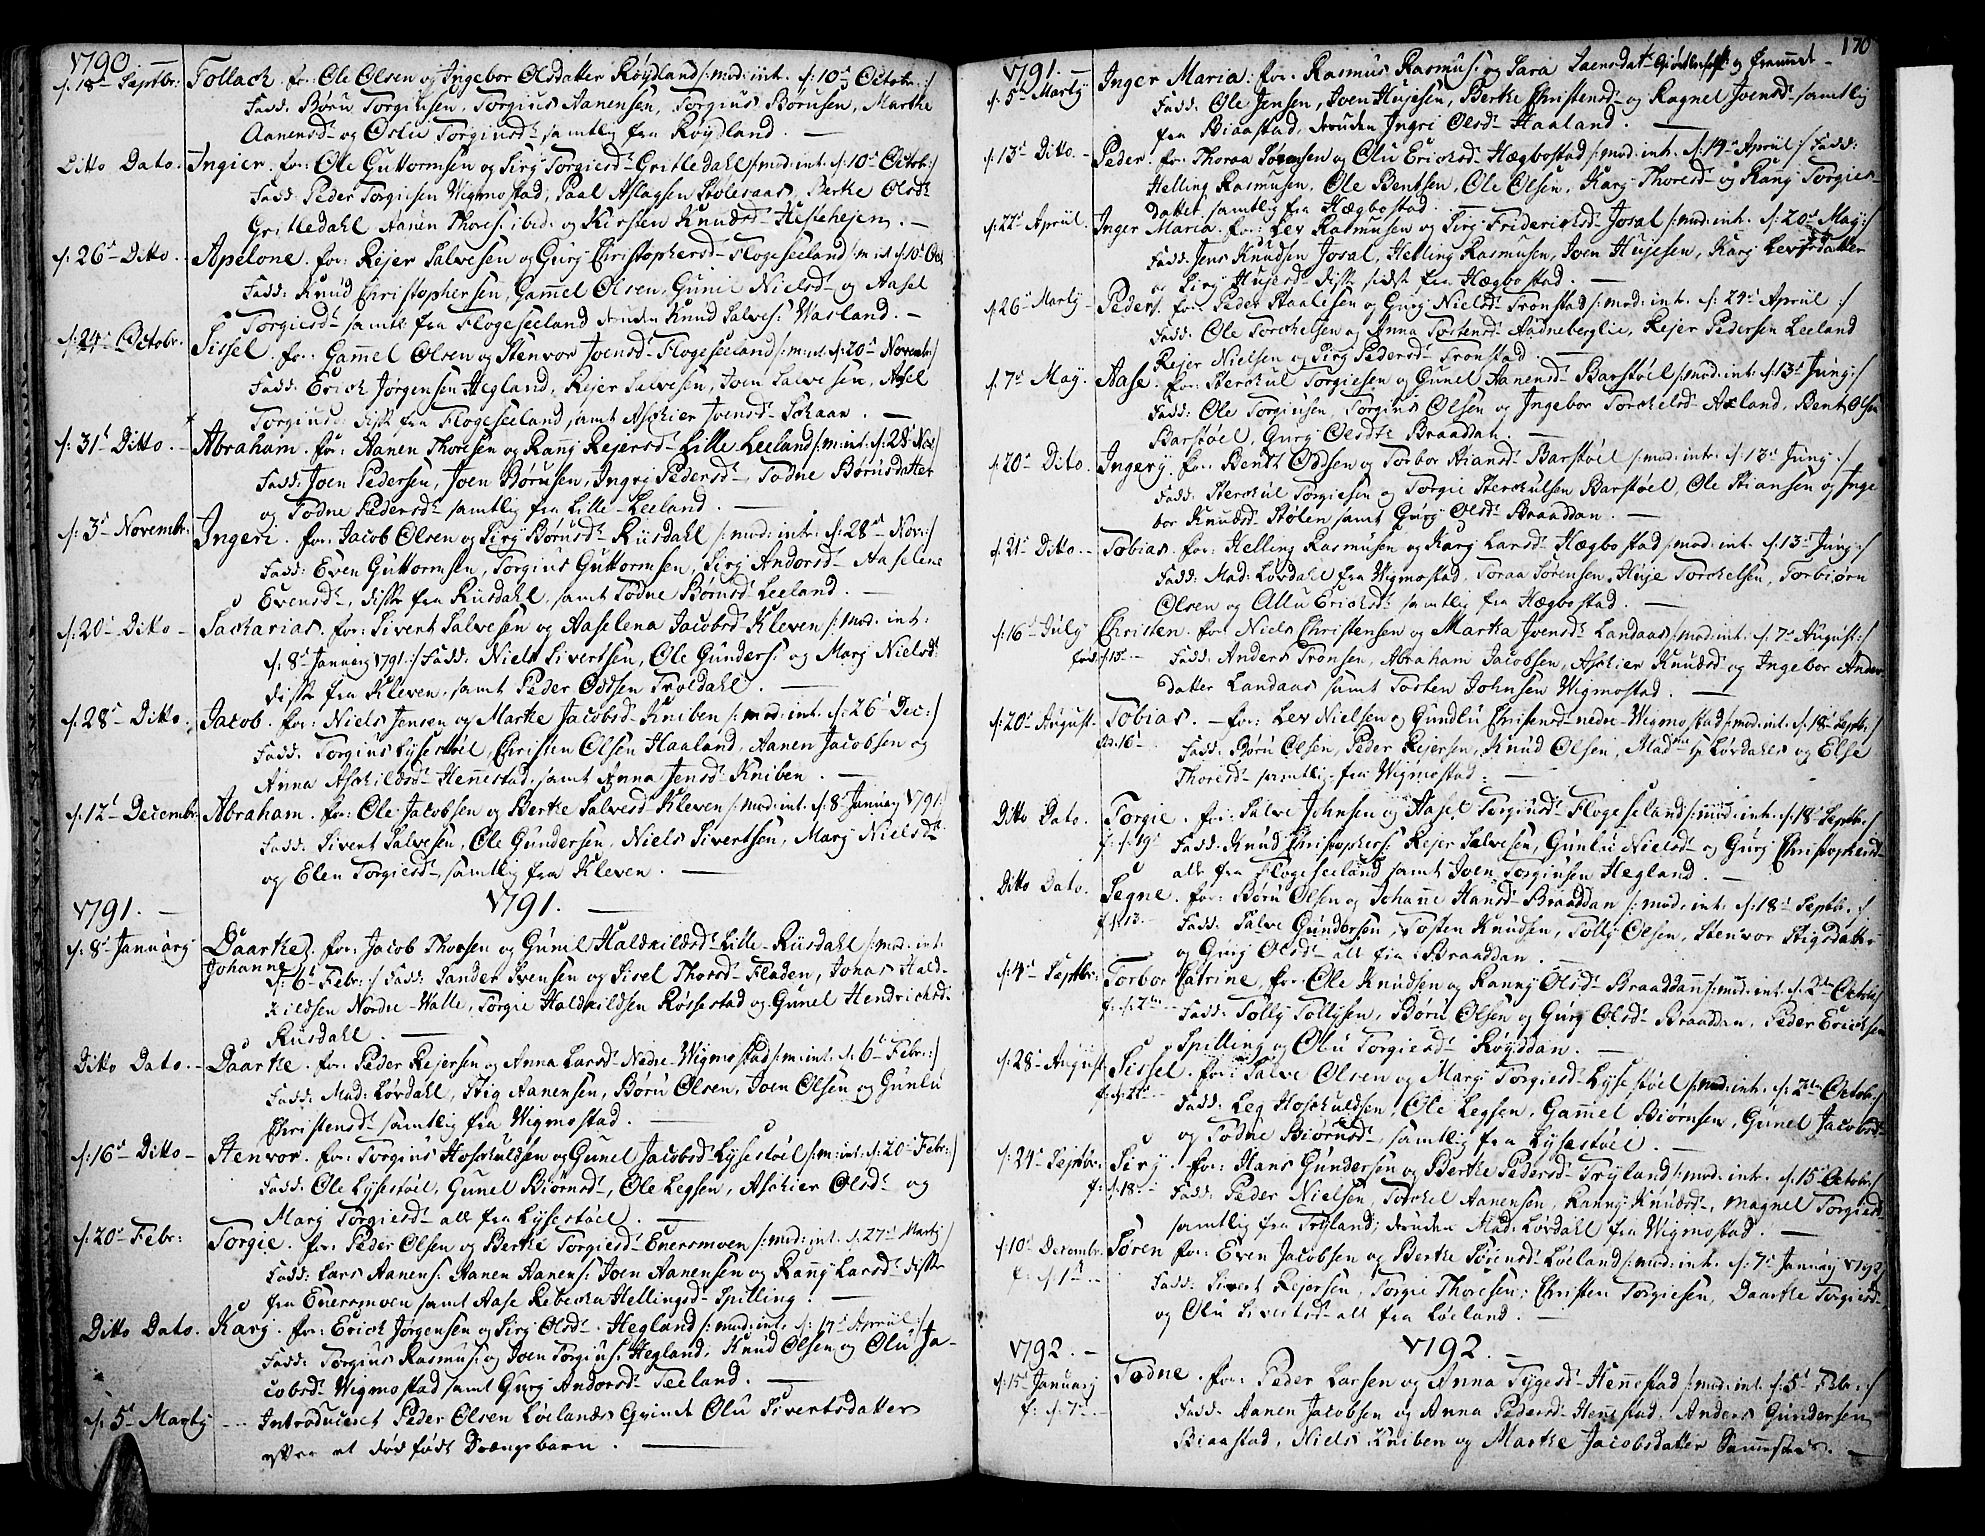 1790
d: 18d Septbr: Tollach. for: Ole Olsen og Ingebor Olsdatter Röydland /: mod: int. d: 10d Octobr :/
Fadd: Böru Torgiusen, Torgius Aanensen, Torgius Börusen, Marthe
Aanensdr og Oslu Torgiusdr samtlig fra Röydland.
Ditto Dato. Ingier. for: Ole Guttormsen og Sirj Torgiesdr Gritledahl /: mod: int. d: 10d Octob: /
Fadd: Peder Torgiesen Wigmostad, Paal Aslagsen Stolesaas, Berte Olsdr
Gritledahl Aanen Thores: ibid. og Kirsten Knudsdr Hestehejen.
d: 26d Ditto. Apelone. for: Rejer Salvesen og Gurj Christophersdr Flogeseeland /: m: int d: 10d Oct
Fadd: Knud Christophersen, Gamel Olsen, Gunel Nielsdr og Aasel
Torgiesdr samtl: fra Flogeseeland desuden Knud Salves: Wasland.
d: 24d Octobr. Sissel. for: Gamel Olsen og Stenvor Joensdr Flogeseeland /: m: int. d: 20d Novembr :/
Fadd: Erich Jörgensen Hegland, Rejer Salvesen, Joen Salvesen, Aasel
Torgiusdr disse fra Flogeseeland, samt Aschier Joensdr Schaar.
d: 31d Ditto. Abraham. for: Aanen Thoresen og Ranj Rejersdr Lille Leeland /: m: int: d: 28d Nov: /
Fadd: Joen Pedersen, Joen Börusen, Ingrj Pedersdr, Todne Börusdatter
og Todne Pedersdr samtlig fra Lille-Leeland.
d: 3d Novembr: Ingeri. for: Jacob Olsen og Sirj Börusdr Riisdahl /: mod: int: d: 28d Nov: /
Fadd: Even Guttormsen, Torgius Guttormsen, Sirj Andorsdr Aaselene
Evensdr, disse fra Riisdahl, samt Todne Börusdr Leeland.
d: 20d Ditto Sacharias. for: Sivert Salvesen og Aaselena Jacobsdr Kleven /: mod: int:
d: 8d Januarj 1791 :/ Fadd: Niels Sivertsen, Ole Gunders: og Marj Nielsdr
disse fra Kleven, samt Peder Oddsen Troldahl.
d: 28d Ditto. Jacob. for: Niels Jensen og Marthe Jacobsdr Kniben /: mod: int. d: 26d Dec: /
Fadd: Torgius Lysestöel, Christen Olsen Haaland, Aanen Jacobsen og
Anna Aschildsdr Hennestad, samt Anna Jensdr Kniben.
d: 12d Decembr: Abraham. for: Ole Jacobsen og Berte Salvesdr Kleven /: mod: int: d: 8d Januarj 1791 :/
Fadd: Sivert Salvesen, Ole Gundersen, Niels Sivertsen, Marj Nielsdr
og Elen Torgiesdr samtlig fra Kleven.
1791. 1791.
d: 8d Januarj Daarthe Johanne. for: Jacob Thorsen og Gunil Haldvildsdr Lille-Riisdahl /: mod: int:
d: 6d Febr: / Fadd: Sander Svensen og Sisel Thorsdr Fladen, Jonas Hald-
vildsen Nordre-Walle, Torgie Haldvildsen Rossestad og Gunel Hendrichsdr
Riisdahl.
Ditto Dato. Daarthe. for: Peder Rejersen og Anna Larsdr Nedre-Wigmostad /: m: int. d: 6d Febr: /
Fadd: Mad: Lövdahl, Stig Aanensen, Börü Olsen, Joen Olsen og Gunlu
Christensdr samtlig fra Wigmostad.
d: 16d Ditto Stenvor. for: Torgius Hoschuldsen og Gunel Jacobsdr Lysestöel /: m: int: d: 20d Febr: /
Fadd: Ole Lysestöel, Gunel Biörnsdr, Ole Legsen, Aschier Olsdr og
Marj Torgiesdr alle fra Lysestöel.
d: 20d Febr: Torgie. for: Peder Olsen og Berte Torgiesdr Enersmoen /: mod: int. d: 27d Martj /
Fadd: Lars Aanens: Aanen Aanens: Joen Aanensen og Ranj Larsdr disse
fra Enersmoen samt Aase Rebecka Hellingsdr Spilling.
Ditto Dato. Karj. for: Erich Jörgensen og Sirj Olsdr Hegland /: mod: int. d: 14d Apriil :/
Fadd: Torgius Rasmus: og Joen Torgius: Hegland, Knud Olsen og Olu Ja-
cobsdr Wigmostad samt Gurj Andorsdr Teeland.
d: 5d Martij Introduceret Peder Olsen Löelands Qvinde Olu Sivertsdatter
efter et död födt Drengebarn.
170
1791
d: 5d Martij Inger Maria. for: Rasmus Rasmus: og Sara og fremmet
Fadd: Ole Jensen, Joen Hujesen, Berte Christensdr og Ragnel Joensdr samtlig
fra Biaastad, desuden Ingri Olsdr Haaland.
d: 13d Ditto. Peder. for: Thoraa Sörensen og Olu Erichsdr Hægbostad /: mod: int. d: 14d Apriil :/ Fadd:
Helling Rasmusen, Ole Bentsen, Ole Olsen, Karj Thoresdr og Ranj Torgies-
datter samtlig fra Hægbostad.
d: 22d Apriil. Inger Maria. for: Lev Rasmusen og Sirj Friderichsdr Josal /: mod: int. d: 20d Maj :/
Fadd: Jens Knudsen Josal, Helling Rasmusen, Joen Hujesen, Karj Levsdatter
og Sirj Hujesdr disse sidst fra Hægbostad.
d: 26d Martij Peder. for: Peder Staalesen og Gurj Nielsdr Tronstad /: mod: int: d: 24d Apriil :/
Fadd: Ole Torchelsen og Anna Tostensdr Aadneberglie, Rejer Pedersen Leeland
Rejer Nielsen og Sirj Pedersdr Tronstad.
d: 7d Maj. Aase. for: Sterchul Torgiesen og Gunel Aanensdr Barstöel /: mod: int: d: 13d Junj :/
Fadd: Ole Torgiusen, Torgius Olsen og Ingebor Torchelsdr Axland, Bent Olsen
Barstöel, Gurj Olsdtr Braaddan.
d: 20d Dito. Ingerj. for: Bentt Oddsen og Torbor Stiansdr Barstöel /: mod: int: d: 13d Junj :/
Fadd: Sterchul Torgiesen og Torgie Sterchulsen Barstöel, Ole Stiansen og Inge
bor Knudsdr Stölen samt Gurj Olsdr Braaddan.
d: 21d Ditto. Tobias. for: Helling Rasmusen og Karj Larsdr Hægbostad /: mod: int. d: 13d Junj :/
Fadd: Mad: Lövdahl fra Wigmostad, Toraa Sörensen, Huje Torchelsen, Torbiörn
Olsen og Allu Erichsdr samtlig fra Hægbostad.
d: 16d Julij Christen. for: Niels Christensen og Martha Joensdr Landaas /: mod: int. d: 7d August :/
föd: d: 15. Fadd: Anders Tronsen, Abraham Jacobsen, Aschier Knudsdr og Ingebor Anders
datter Landaas samt Tosten Johnsen Wigmostad.
d: 20d August. Tobias. for: Lev Nielsen og Gundlu Christensdr nedre-Wigmostad /: mod: int. d: 18d Septbr: /
16 Fadd: Börü Olsen, Peder Rejersen, Knud Olsen, Madme Lövdahls og Else
Thoresdr samtlig fra Wigmostad.
Ditto Dato. Torgie. for: Salve Johnsen og Aasel Torgiusdr Flogeseland /: mod: int. d: 18d Septbr: /
f: d: 19d Fadd: Knud Christophers: Rejer Salvesen, Gunlu Nielsdr og Gurj Christophersdr
alle fra Flogeseeland samt Joen Torgiusen Hegland.
Ditto Dato. Segne. for: Börü Olsen og Johane Hansdr Braaddan /: mod: int: d: 18d Septb. /
f: d: 13. Fadd: Salve Gundersen, Tosten Knudsen, Tollj Olsen, Stenvor Stigsdatter
og Gurj Olsdr alle fra Braaddan.
d: 4d Septbr: Torbor Catrine, for: Ole Knudsen og Ranny Olsdr Braaddan /: mod: int. d: 2den Octobr /
f: d: 2den Fadd: Tolly Tollysen, Börü Olsen og Gurj Olsdr Braaddan, Peder Erichsen
Spilling og Olu Torgiesdr Röyddan.
d: 28d August Sissel. for: Salve Olsen og Marj Torgiesdr Lysestöel /: mod: int. d: 2den Octob: /
f: d: 21d Fadd: Leg Hoschuldsen, Ole Legsen, Gamel Biörnsen, Gunel Jacobsdr
og Todne Biörnsdr, samtlig fra Lysestöel.
d: 24d Septbr: Sirj. for: Hans Gundersen og Berthe Pedersdr Tryland /: mod: int. d: 15d Octob: /
f: d: 18. Fadd: Peder Nielsen, Torchel Aanensen, Ranny Knudsdr, Magnel Torgiesdr
samtlig fra Tryland, desuden Mad: Lövdahl fra Wigmostad.
d: 10d Decembr. Sören for: Even Jacobsen og Berthe Sörensdr Löeland /: mod: int. d: 7d Januarj 1792 /
f: d: 1ste Fadd: Sivert Rejersen, Torgie Thoresen, Christen Torgiesen, Daarthe Torgiesdr
og Olu Sivertsdr alle fra Löeland.
1792. 1792.
d: 15d Januarij Todne. for: Peder Larsen og Anna Tygesdr Hennestad /: mod: int. d: 5d Febr: /
f: d: 7d Fadd. Aanen Jacobsen og Anna Pedersdr Hennestad. Anders Gundersen
Biaastad, Niels Kniben og Marthe Jacobsdatter Sammesteds.